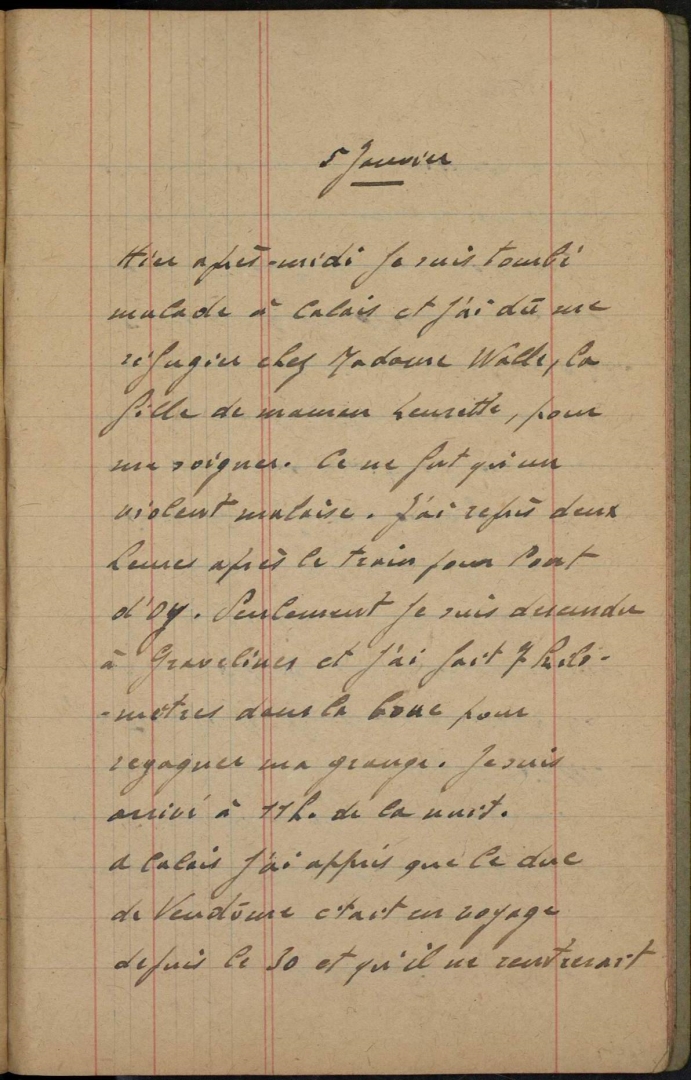 5 Janvier
Hier après-midi je suis tombé
malade à Calais et j'ai dû me
réfugier chez Madame Walle, la
fille de maman Henriette, pour
me soigner. Ce ne fut qu'un
violent malaise. J'ai repris deux
heures après le train pour Pont
d'Oy. Seulement je suis descendu
à Gravelines et j'ai fait 7 kilo-
-mètres dans la boue pour
regagner ma grange. Je suis
arrivé à 11h. de la nuit.
A Calais j'ai appris que le duc
de Vendôme était en voyage
depuis le 30 et qu'il ne rentrerait